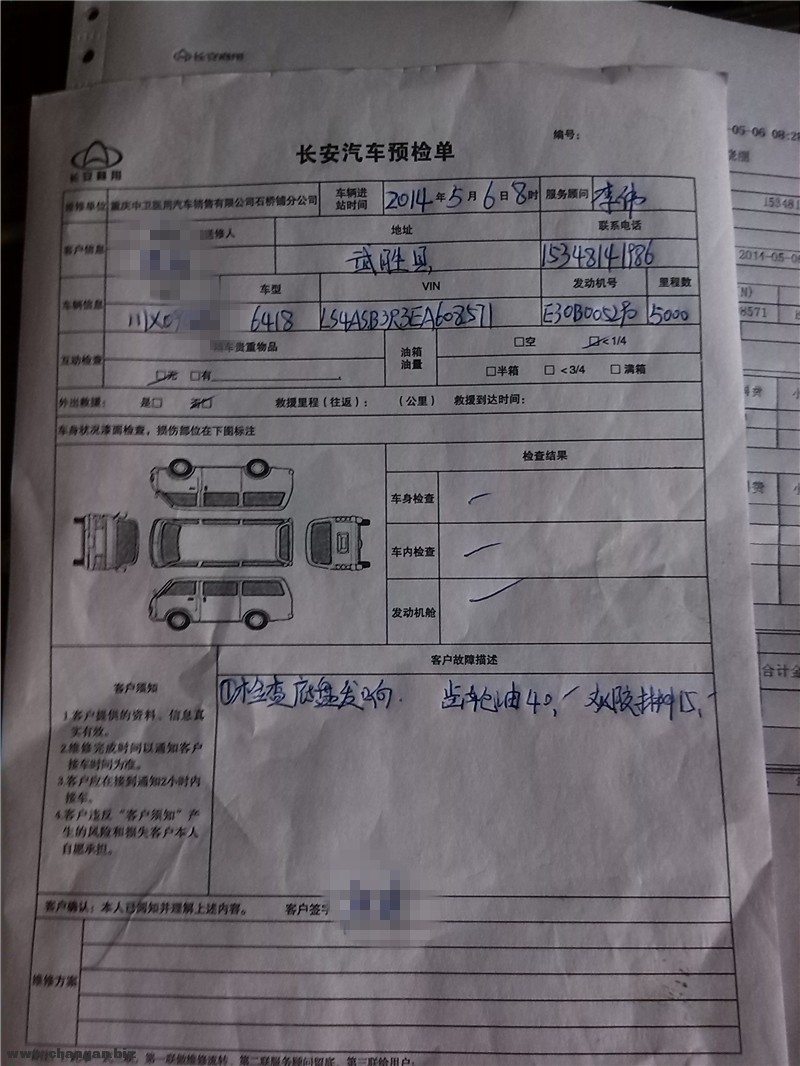 长安商用
-05-06 08:28
编号：
长安汽车预检单
长安商用
153481
维修单位 重庆中卫医用汽车销售有限公司石桥铺分公司 车辆进站时间 2014年5月6日8时 服务顾问 李伟
客户信息 送修人 地址 联系电话
武胜县 15348141986
2014-05-0
车辆信息 车型 VIN 发动机号 里程数
川X0 6418 LS4ASB3R3EA608571 E30B005290 5000
8571
互动检查 车贵重物品 油箱油量 □空 □<1/4
□无 □有 □半箱 □<3/4 □满箱
外出救援： 是□ 否□ 救援里程（往返）： （公里） 救援到达时间：
车身状况漆面检查，损伤部位在下图标注
检查结果
车身检查
车内检查
发动机舱
客户故障描述
合计金
客户须知
①检查底盘发响. 齿轮油40, 双陂排料15,
1.客户提供的资料、信息真
实有效。
2.维修完成时间以通知客户
接车时间为准。
3.客户应在接到通知2小时内
接车。
4.客户违反“客户须知”产
生的风险和损失客户本人
自愿承担。
客户确认：本人已阅知并理解上述内容。 客户签字
维修方案
www.jchangan.biz
第一联做维修流转、第二联服务顾问留底、第三联给用户；